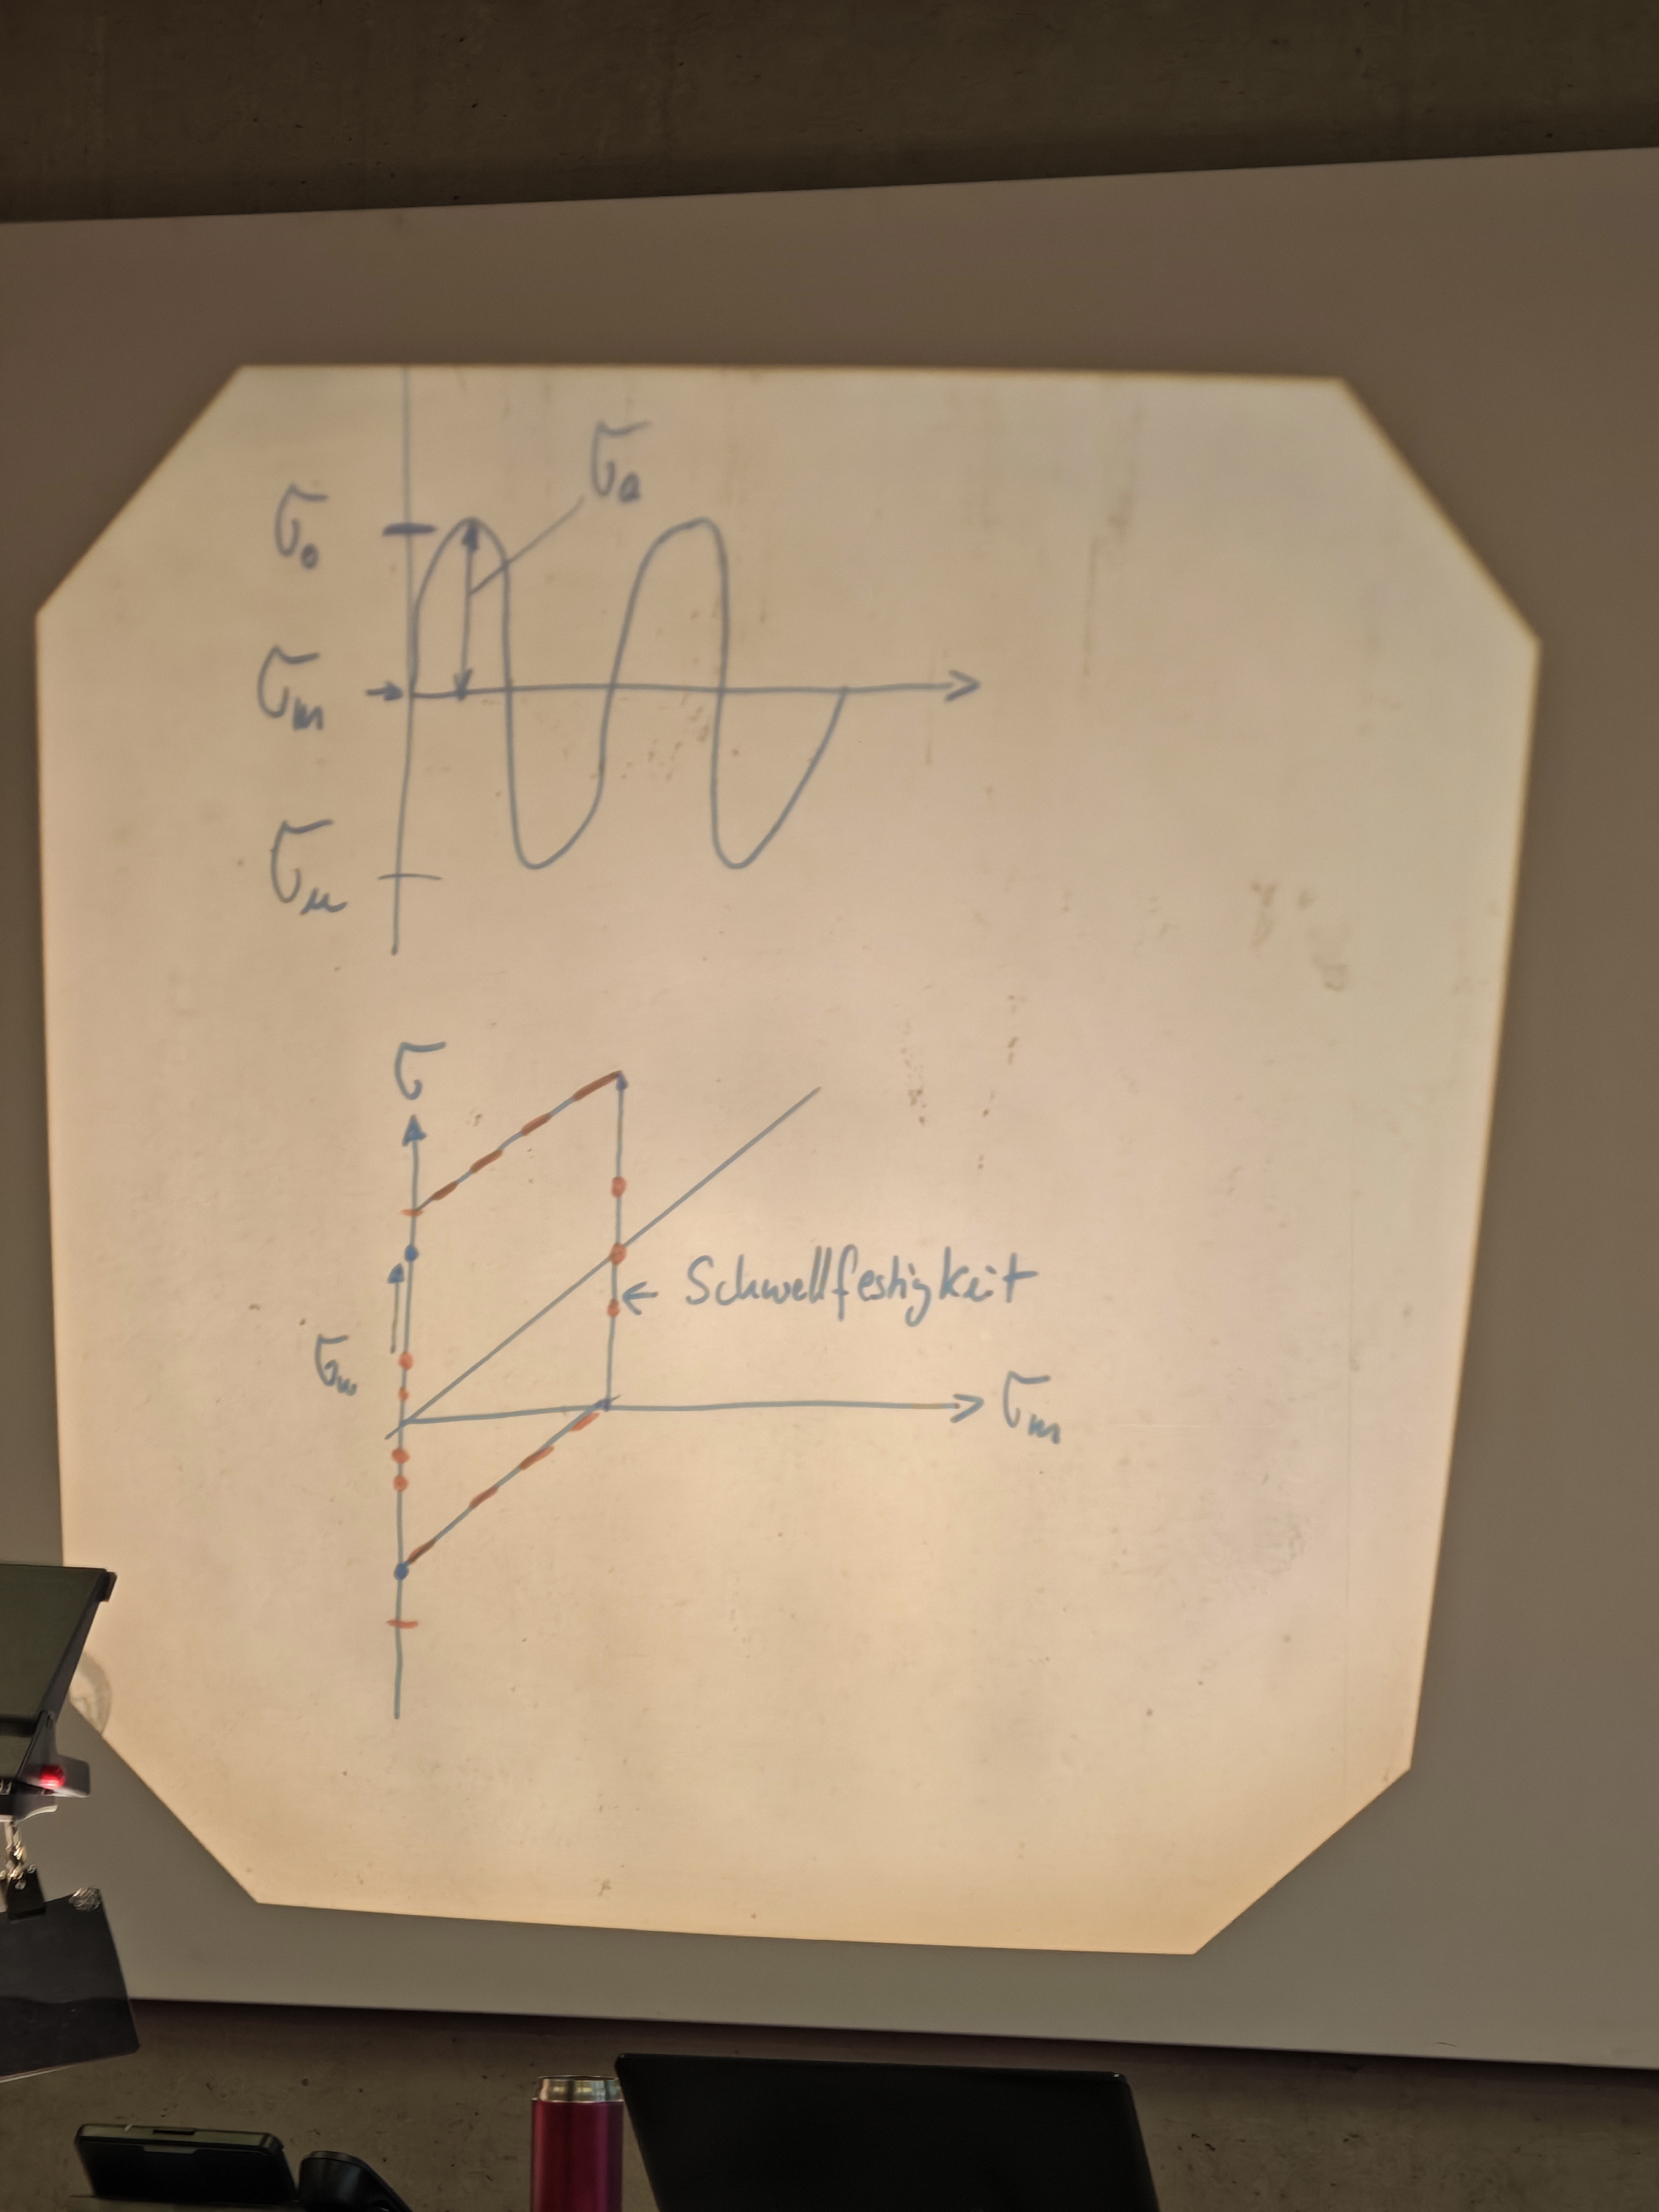 σa
σo
σm
σu
σ
← Schwellfestigkeit
σw
σm